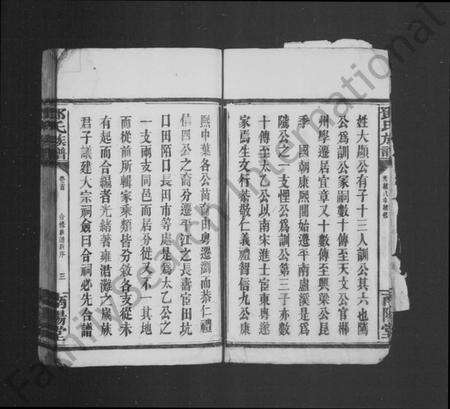 姓大顯公有子十三人訓公其六也薦
公為訓公家嗣數十傳至天文公官郴
州學遷居宜章又十數傳至興梁公昆
季
國朝康熙開始遷平南盧溪是為
號公之一支煙公為訓公第三子亦數
十傳至太乙公以南宋進士宦東粵遂
家焉生文行恭敬仁義禮智信九公康
熙中葉各公裔宙由粵遷瀏而恭仁禮
信四公之裔分遷平江之長壽官田坑
口田陌口長田市等處是為太乙公之
一支兩支同邑而居分徙又不一其地
而從前所輯家乘類皆分敘各支從未
有起而合編者光緒著雍涒灘之歲族
君子議建大宗祠僉曰合祠必先合譜
鄧氏族譜
卷首
三
南陽堂
鄧氏族譜
南陽堂
Family Search International